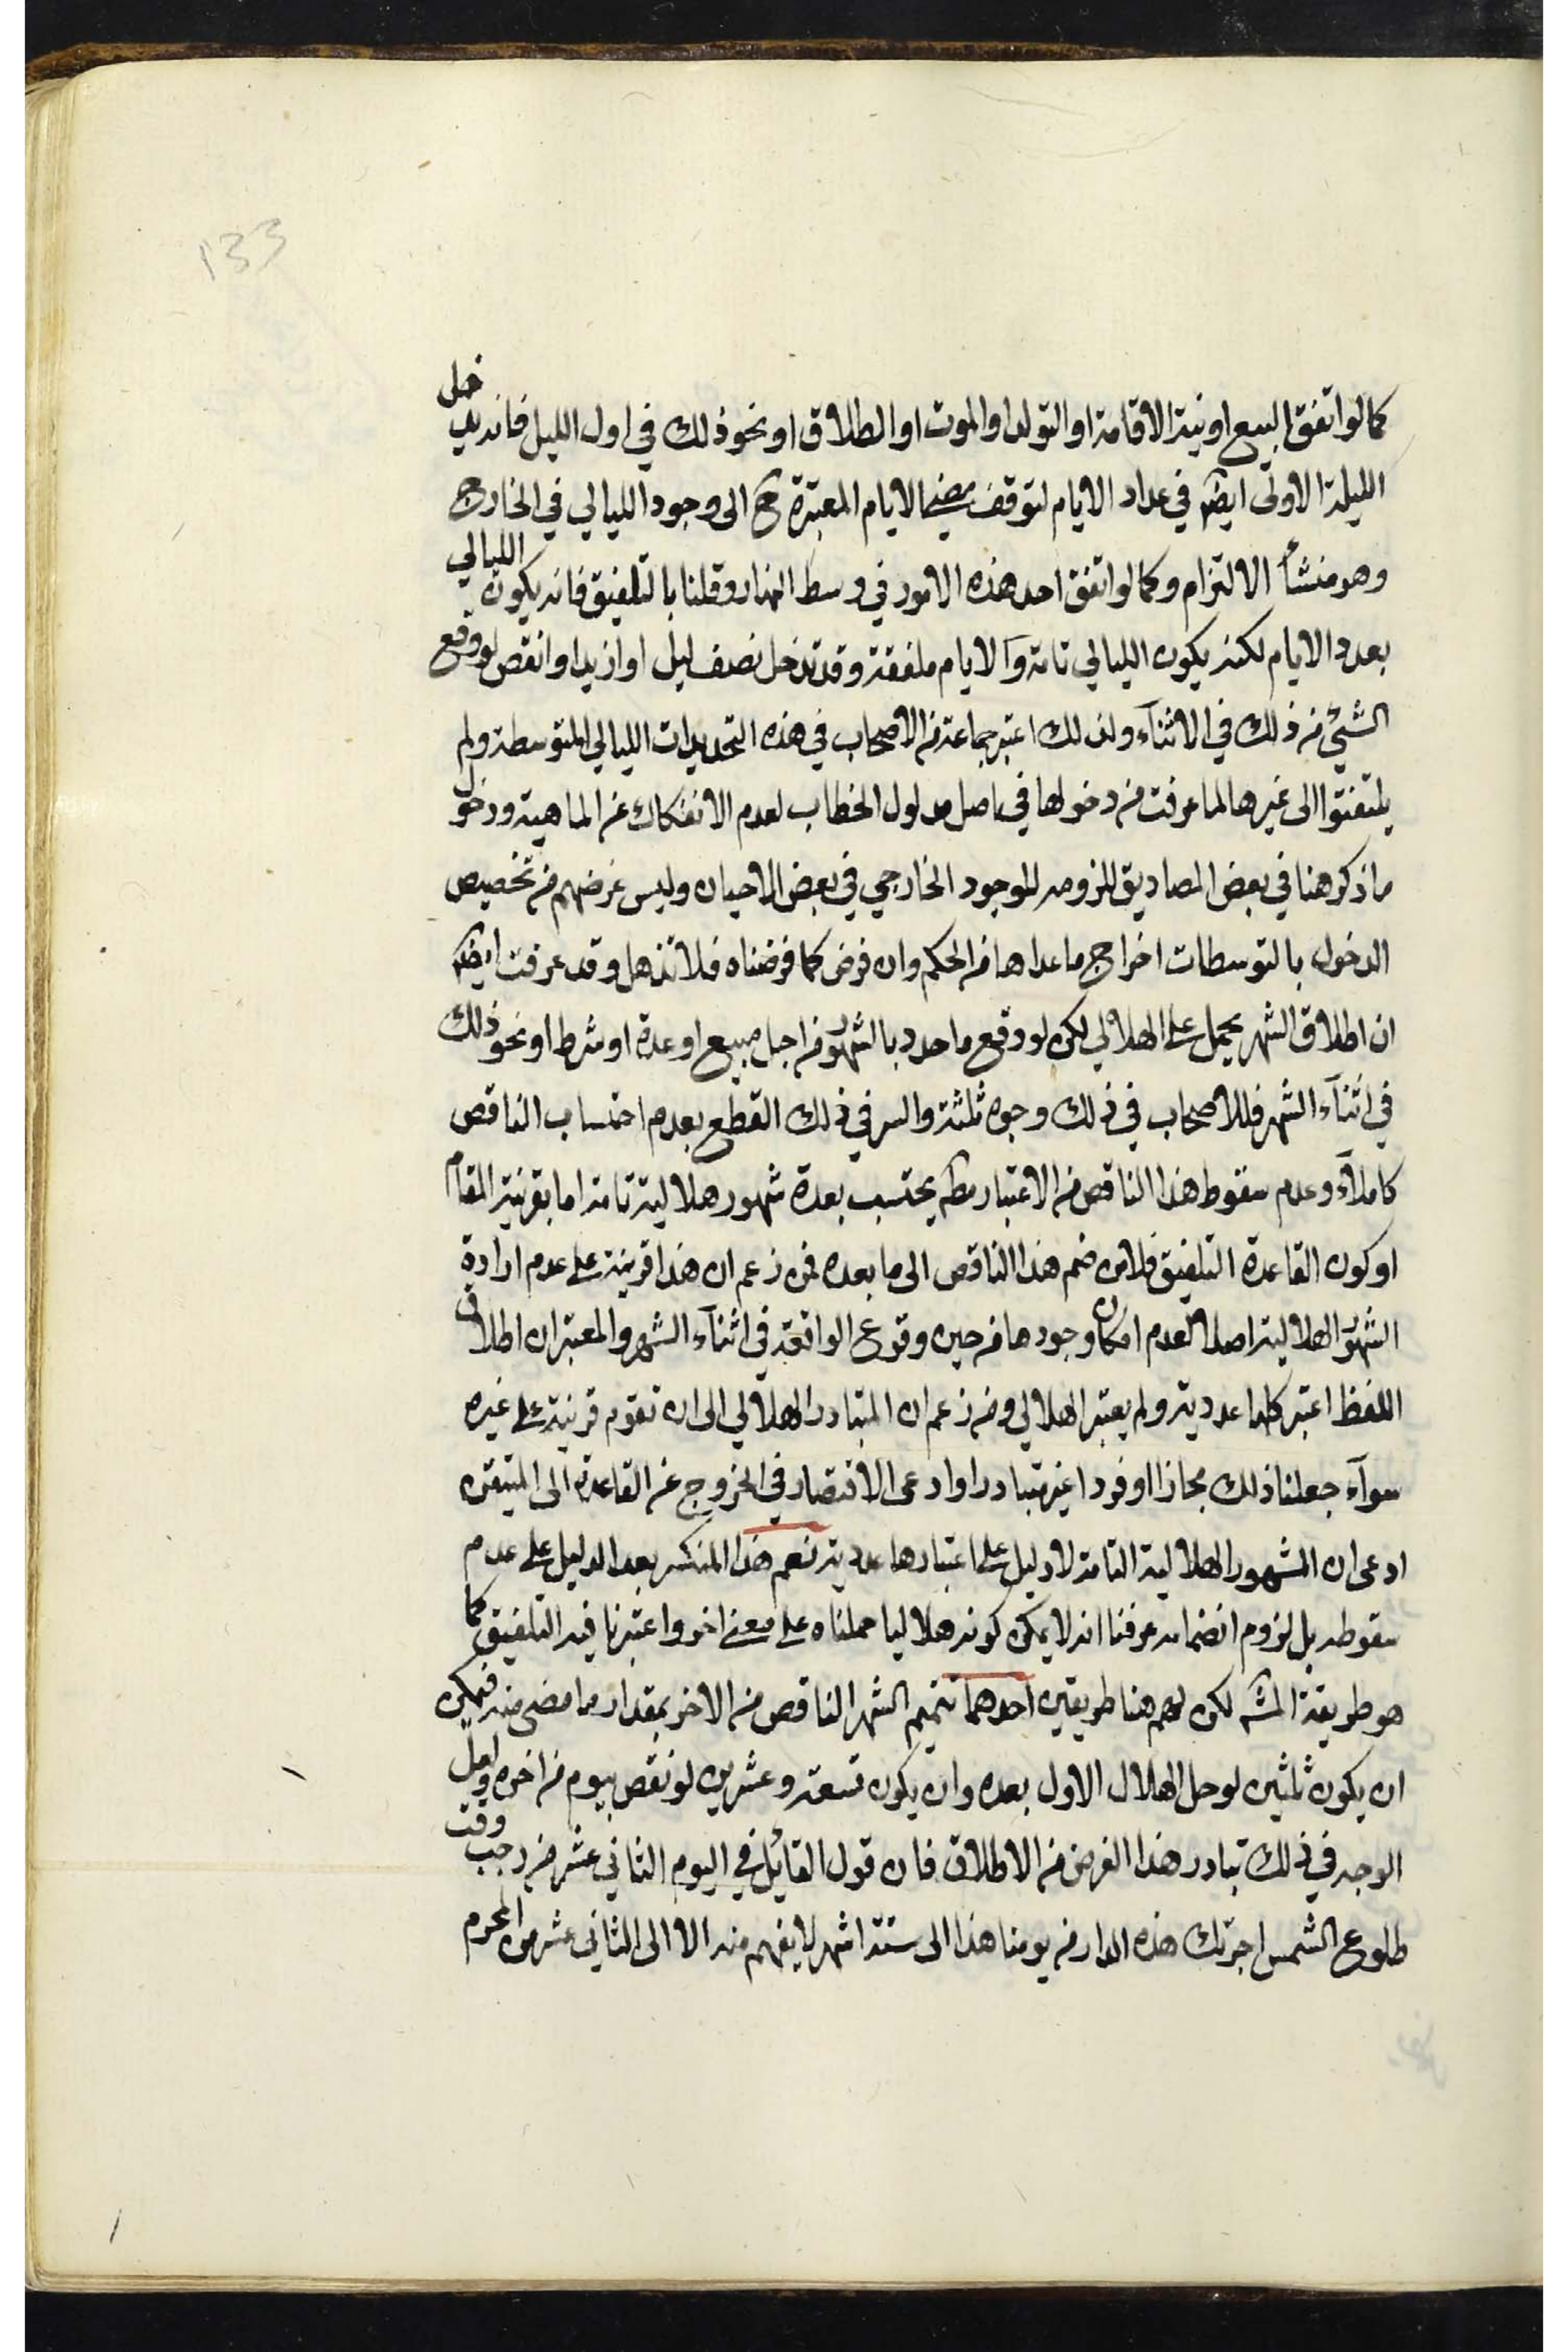 133
كما لو اتفق البيع او نية الاقامة او التولد او الموت او الطلاق او نحو ذلك في اول الليل فانه يدخل
الليلة الاولى ايضا في عداد الايام لتوقف مضي الايام المعتبرة ح الى وجود الليالي في الخارج
وهو منشأ الالتزام وكما لو اتفق احد هذه الامور في وسط النهار وقلنا بالتلفيق فانه يكون الليالي
بعدد الايام لكنه يكون الليالي تامة والايام ملفقة وقد تدخل نصف ليل او ازيد او انقص لو وقع
الشيئ من ذلك في الاثنآء ولذلك اعتبر جماعة من الاصحاب في هذه التحديدات الليالي المتوسطة ولم
يلتفتوا الى غيرها لما عرفت من دخولها في اصل مدلول الخطاب لعدم الانفكاك عن الماهية ودخول
ما ذكر هنا في بعض المصاديق للزومه للوجود الخارجي في بعض الاحيان وليس غرضهم من تخصيص
الدخول بالتوسطات اخراج ما عداها من الحكم وان فرض كما فرضناه فلا تذهل وقد عرفت ايضا
ان اطلاق الشهر يحمل على الهلالي لكن لو وقع ما حدد بالشهور من اجل مبيع او عدة او شرط او نحو ذلك
في اثنآء الشهر فللاصحاب في ذلك وجوه ثلثة والسر في ذلك القطع بعدم احتساب الناقص
كاملآ وعدم سقوط هذا الناقص من الاعتبار مط يحتسب بعدة شهور هلالية تامة اما بقرينة المقام
او كون القاعدة التلفيق فلابد من ضم هذا الناقص الى ما بعده فمن زعم ان هذا قرينة على عدم ارادة
الشهور الهلالية اصلا لعدم امكان وجودها من حين وقوع الواقعة في اثنآء الشهر والمعتبر ان اطلاق
اللفظ اعتبر كلها عددية ولم يعتبر الهلالي ومن زعم ان المتبادر الهلالي الى ان تقوم قرينة على غيره
سوآء جعلنا ذلك مجازا او فردا غير متبادر او ادعى الاقتصار في الخروج عن القاعدة الى المتيقن
ادعى ان الشهور الهلالية التامة لا دليل على اعتبارها عددية نعم هذا المنكسر بعد الدليل على عدم
سقوطه بل لزوم انضمامه عرفنا انه لا يمكن كونه هلاليا حملناه على معنى اخر واعتبرنا فيه التلفيق كما
هو طريقة المش لكن لهم هنا طريقين احدهما تتميم الشهر الناقص من الاخر بمقدار ما مضى منه فيمكن
ان يكون ثلثين لو حل الهلال الاول بعده وان يكون تسعة وعشرين لو نقص بيوم من اخره ولعل
الوجه في ذلك تبادر هذا الفرض من الاطلاق فان قول القائل في اليوم الثاني عشر من رجب وقت
طلوع الشمس اجرتك هذه الدار من يومنا هذا الى ستة اشهر لا يفهم منه الا الى الثاني عشر من المحرم